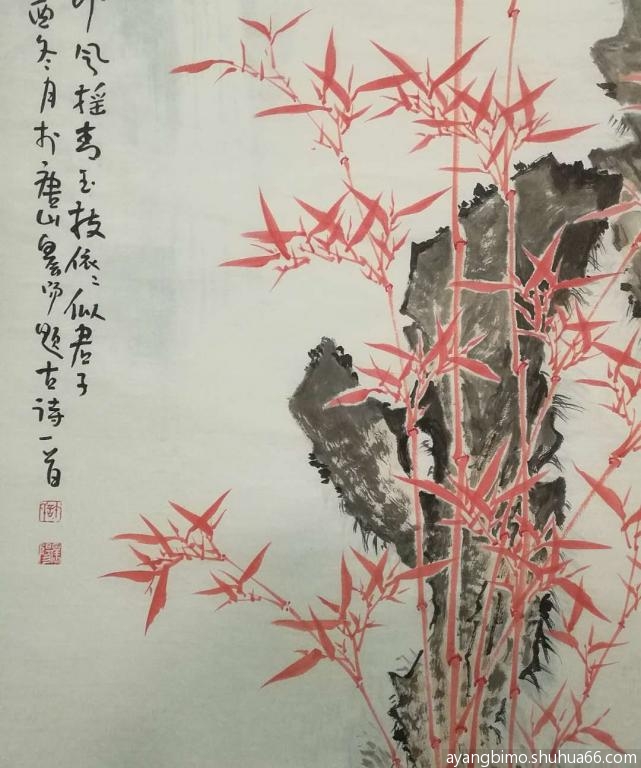 风摇青玉枝依依似君子
酉冬月于唐山昌明题古诗一首
ayangbimo.shuhua66.com